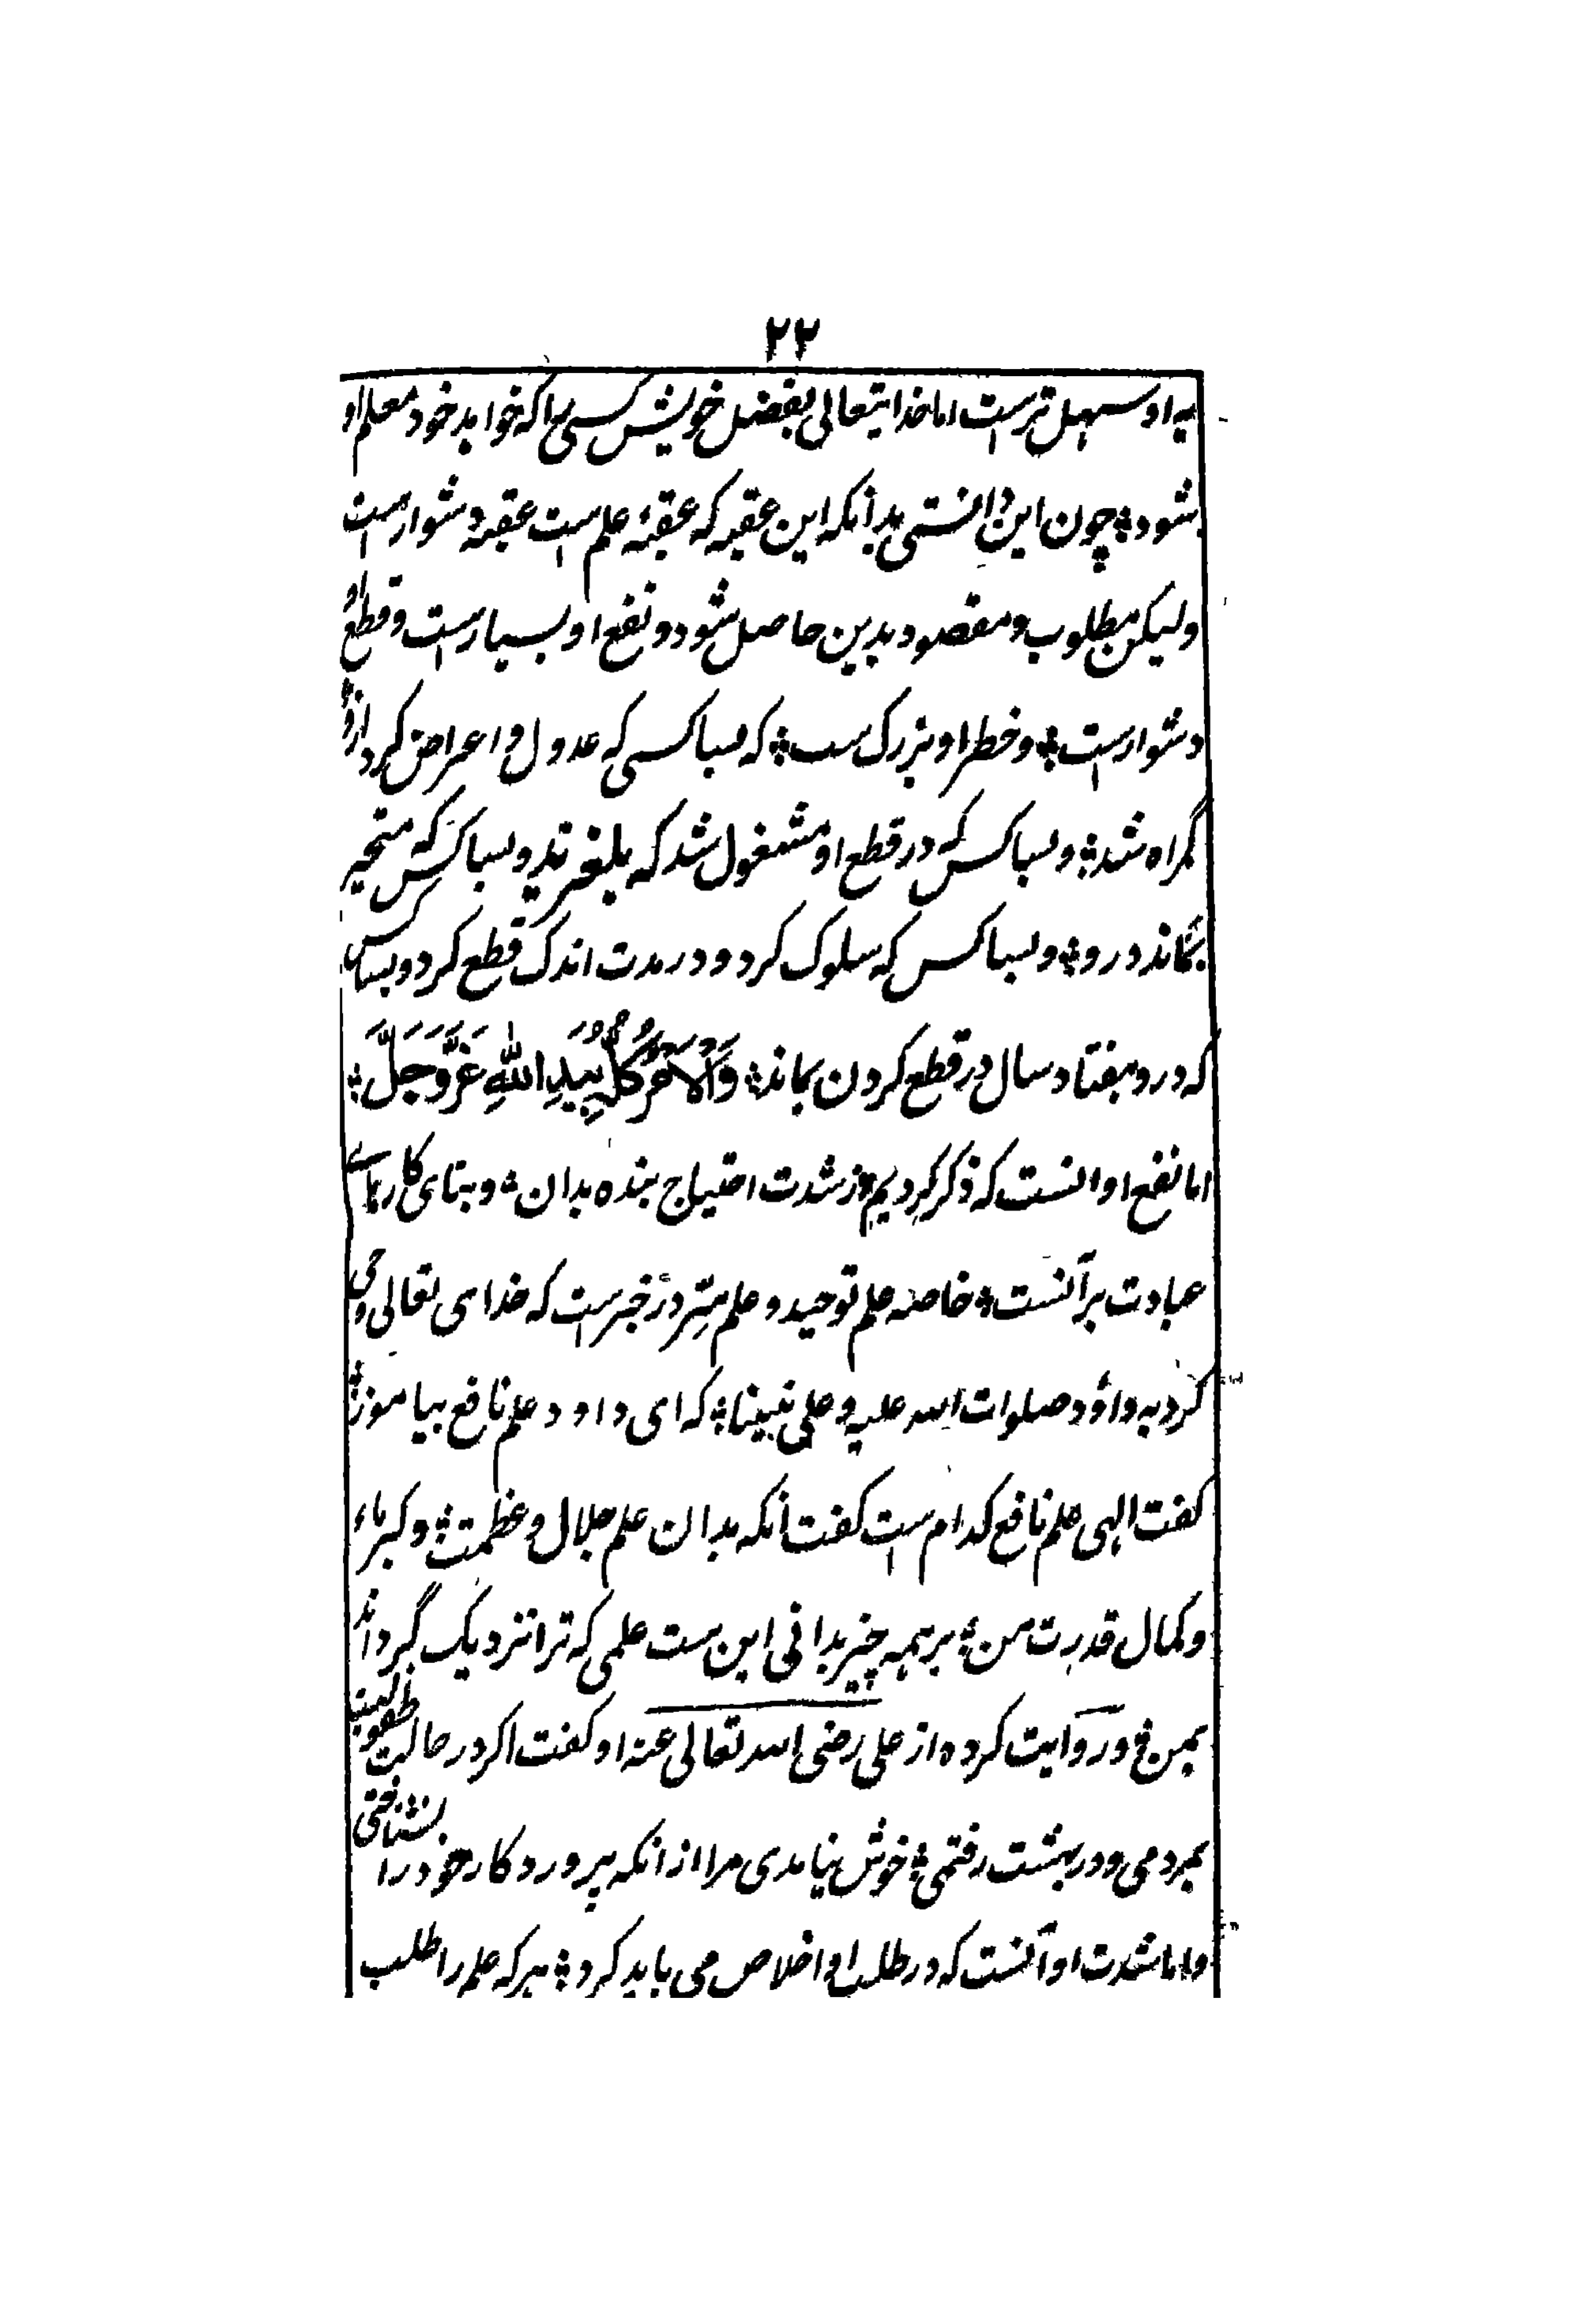 ۲۲
به او سهل ترست اما خدایتعالی بفضل خویش کسی را که خواهد خود معلم او
شود؛ چون این دانستی بدانکه این عقبه که عقبهٔ علم است عقبه دشوارست
ولیکن مطلوب و مقصود بدین حاصل شود و نفع او بسیارست و قطع او
دشوارست؛ و خطر او بزرگ ست؛ که بسا کسی که عدول و اعراض کرد ازو
گمراه شد؛ و بسا کس که در قطع او مشغول شد که بلغزید و بسا کس که متحیر
بماند درو؛ و بسا کس که سلوک کرد و در مدت اندک قطع کرد و بسا کس
که درو هفتاد سال در قطع کردن بماند؛ وَالْاَمْرُ كُلُّهُ بِيَدِ اللّٰهِ عَزَّ وَجَلَّ؛
اما نفع او آنست که ذکر کردیم از شدت احتیاج بنده بدان؛ و بنای کارهاے
عبادت بر آنست؛ خاصه علم توحید و علم سِرّ در خبرست که خدای تعالی وحی
کرد به داؤد صلوات الله علیه و علی نبینا؛ که ای داود علم نافع بیاموز؛
گفت الهی علم نافع کدام است گفت آنکه بدان علم جلال و عظمت؛ و کبریاء
و کمال قدرت من؛ بر همه چیز بدانی این ست علمی که ترا نزدیک گرداند
بمن؛ و روایت کرده از علی رضی الله تعالی عنه او گفت اگر در حالت طفولیت
بمردمی و در بهشت رفتمی؛ خوش نیامدی مرا از انکه پروردگار خود را بشناختی
و اما شدت او آنست که در طلب او اخلاص می باید کرد؛ هر که علم را طلب